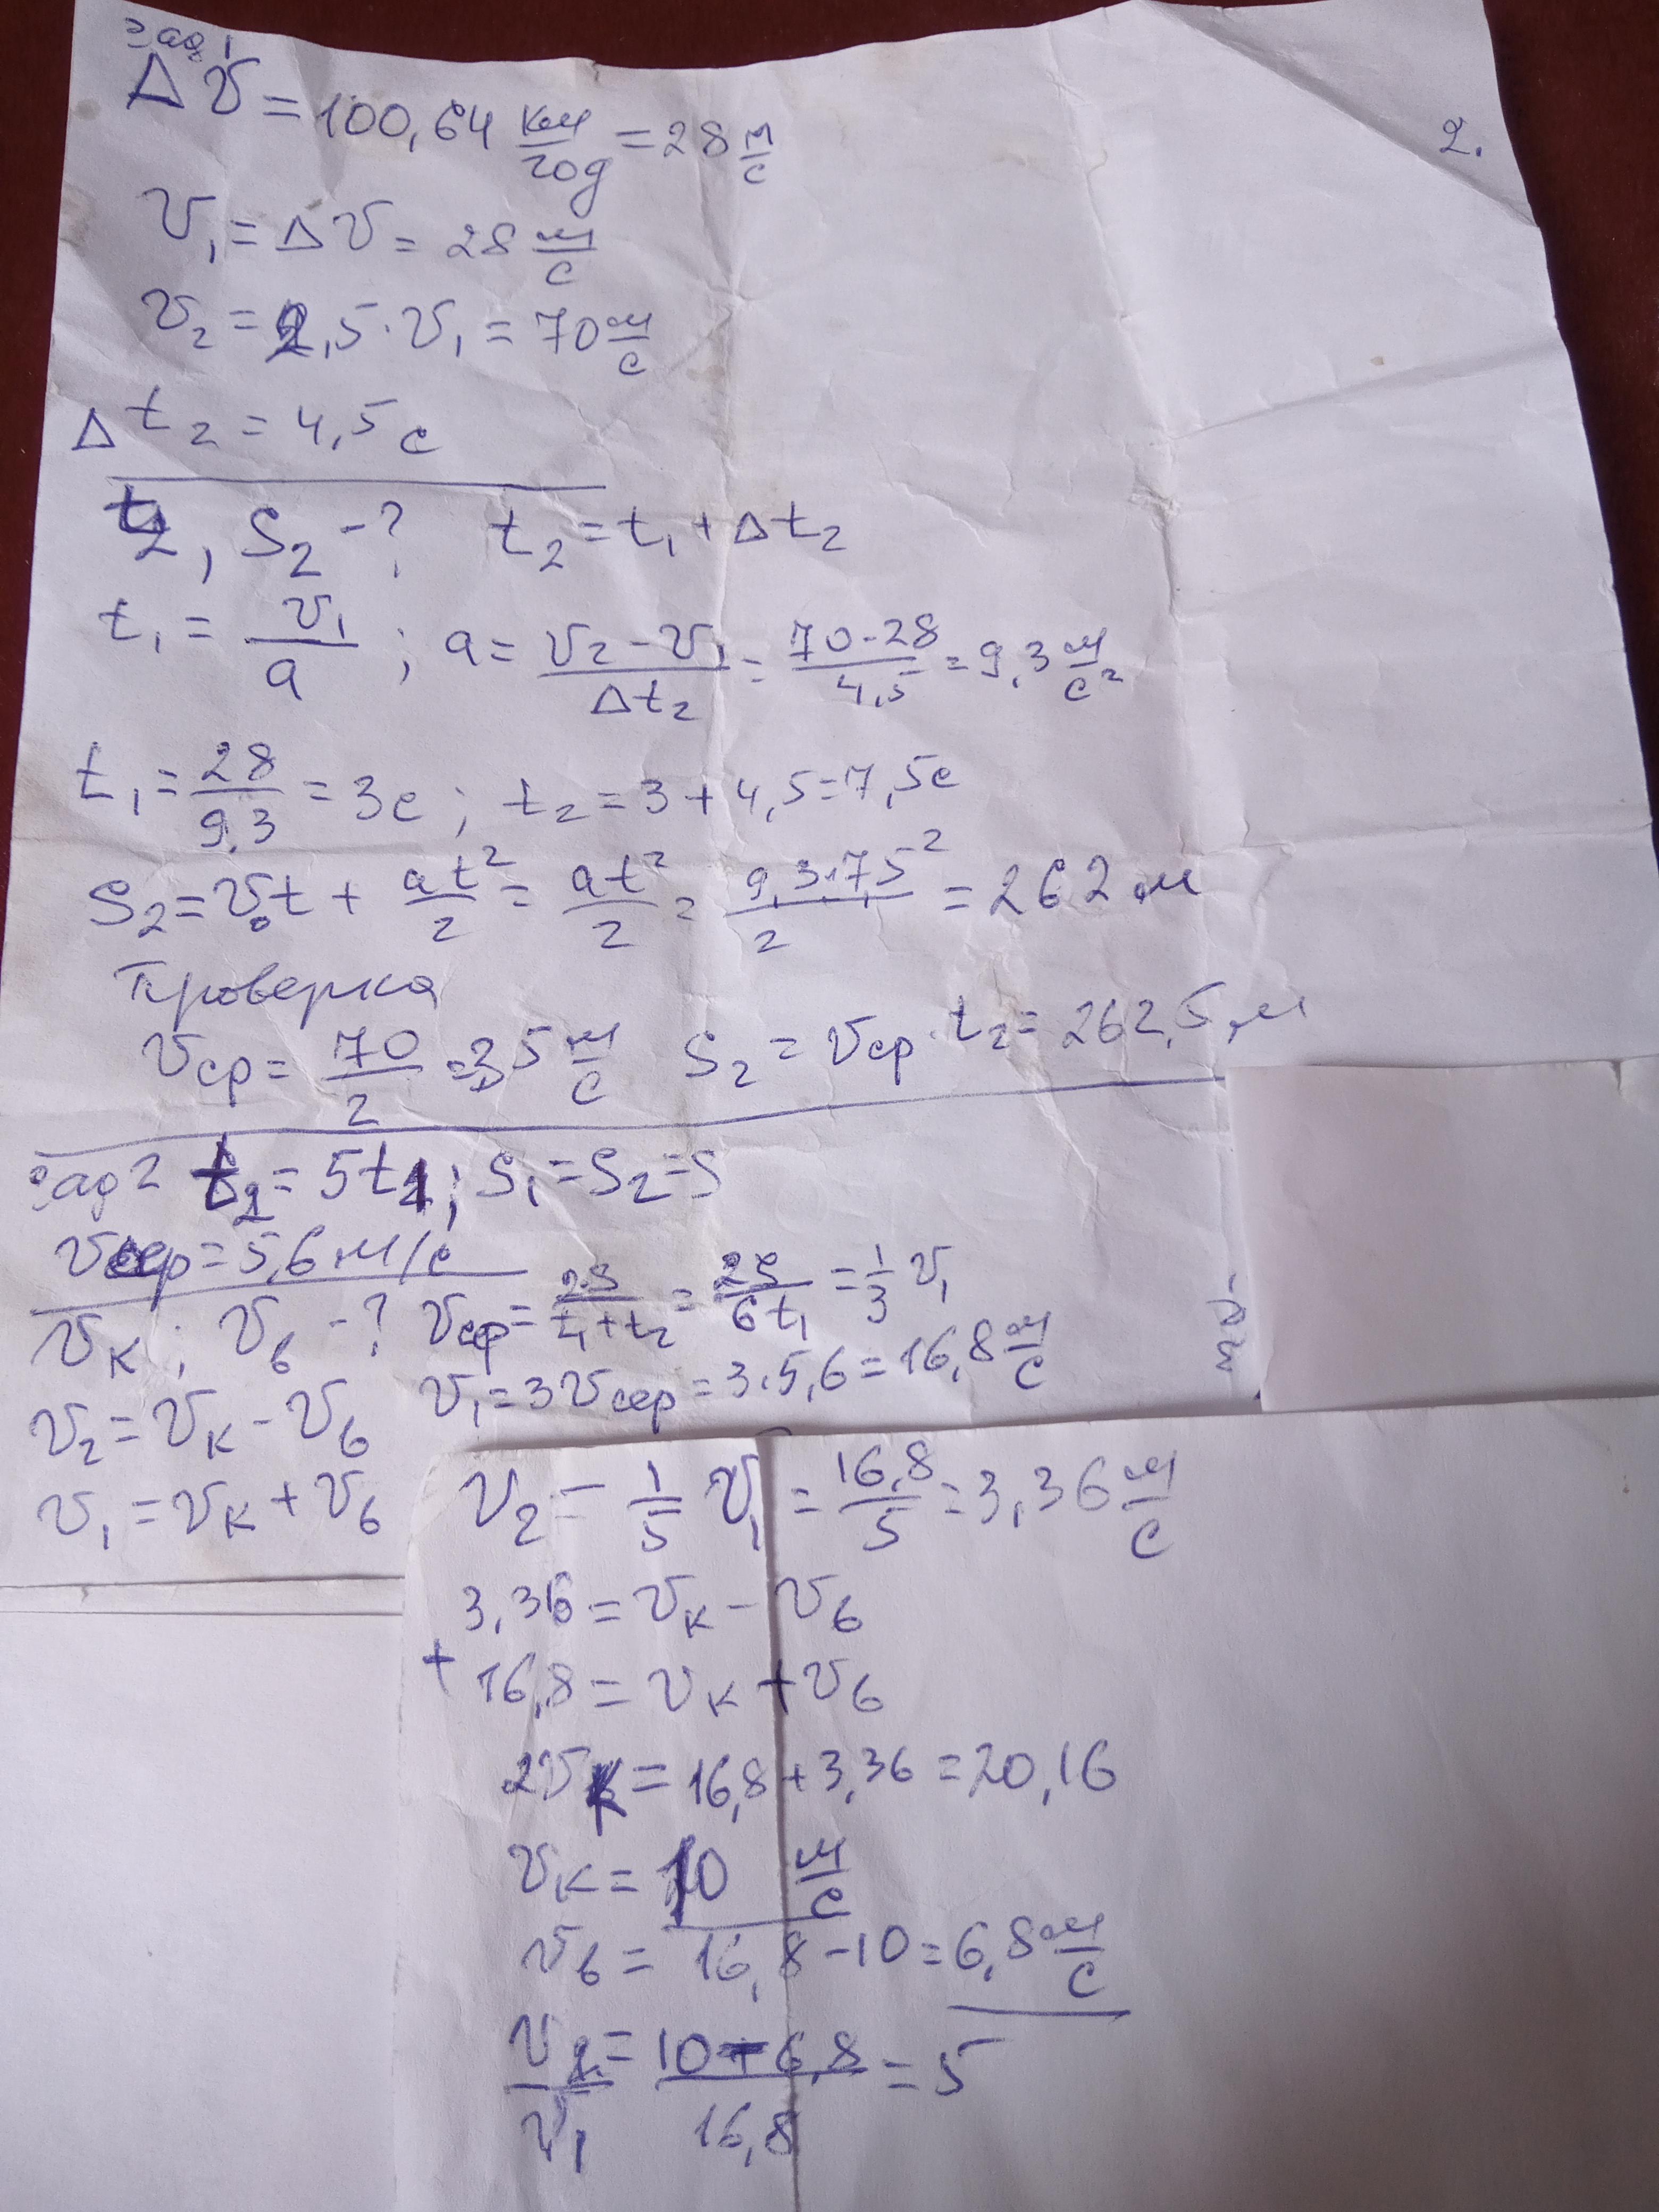 зад 1
Δ V = 100,64 км/год = 28 м/с
2.
V₁ = Δ V = 28 м/с
V₂ = 2,5 · V₁ = 70 м/с
Δ t₂ = 4,5 с
t₂, S₂ - ? t₂ = t₁ + Δ t₂
t₁ = V₁/a ; a = (V₂ - V₁)/Δt₂ = (70 - 28)/4,5 = 9,3 м/с²
t₁ = 28/9,3 = 3с ; t₂ = 3 + 4,5 = 7,5с
S₂ = V₀t + at²/2 = at²/2 = 9,3·7,5²/2 = 262 м
Проверка
Vср = 70/2 = 35 м/с S₂ = Vср · t₂ = 262,5 м
зад 2 t₂ = 5t₁; S₁ = S₂ = S
Vсер = 5,6 м/с
Vк ; Vб - ? Vср = 2S/(t₁+t₂) = 2S/6t₁ = 1/3 V₁
V₂ = Vк - Vб V₁ = 3Vсер = 3·5,6 = 16,8 м/с
V₁ = Vк + Vб V₂ = 1/5 V₁ = 16,8/5 = 3,36 м/с
3,36 = Vк - Vб
+ 16,8 = Vк + Vб
2Vк = 16,8 + 3,36 = 20,16
Vк = 10 м/с
Vб = 16,8 - 10 = 6,8 м/с
V₂/V₁ = (10 - 6,8)/16,8 = 5